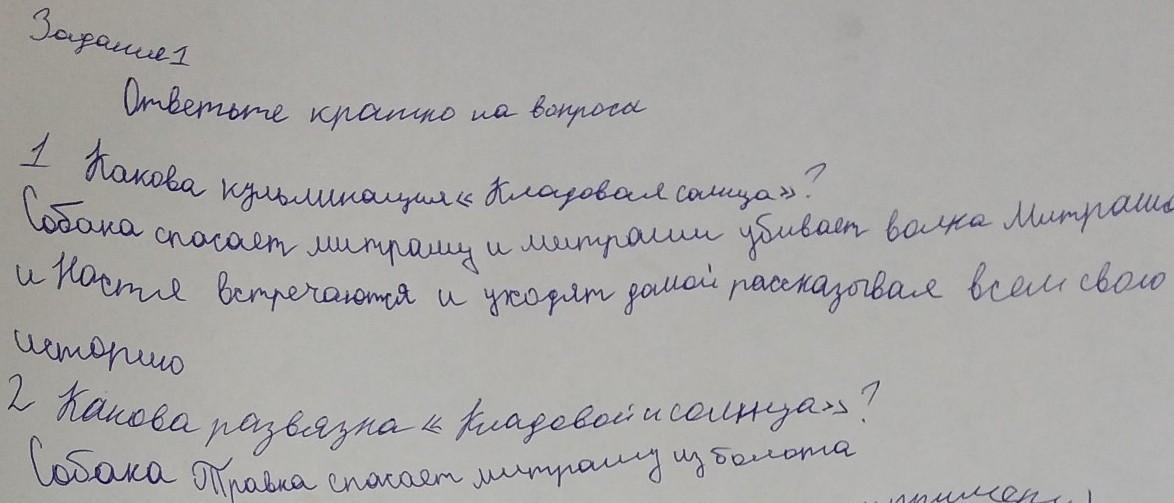 Задание 1
Ответьте кратко на вопроса
1 Какова кульминация « Кладовая солнца»?
Собака спасает митрашу и митраши убивает волка Митраша
и Настя встречаются и уходят домой рассказывая всем свою
историю
2 Какова развязка « Кладовой и солнца»?
Собака Травка спасает митрашу из болота